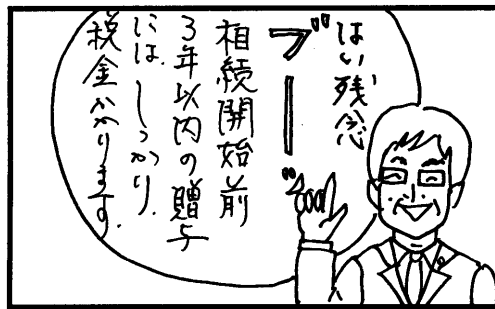 はい残念
ブーーーッ
相続開始前
3年以内の贈与
には、しっかり
税金かかります。